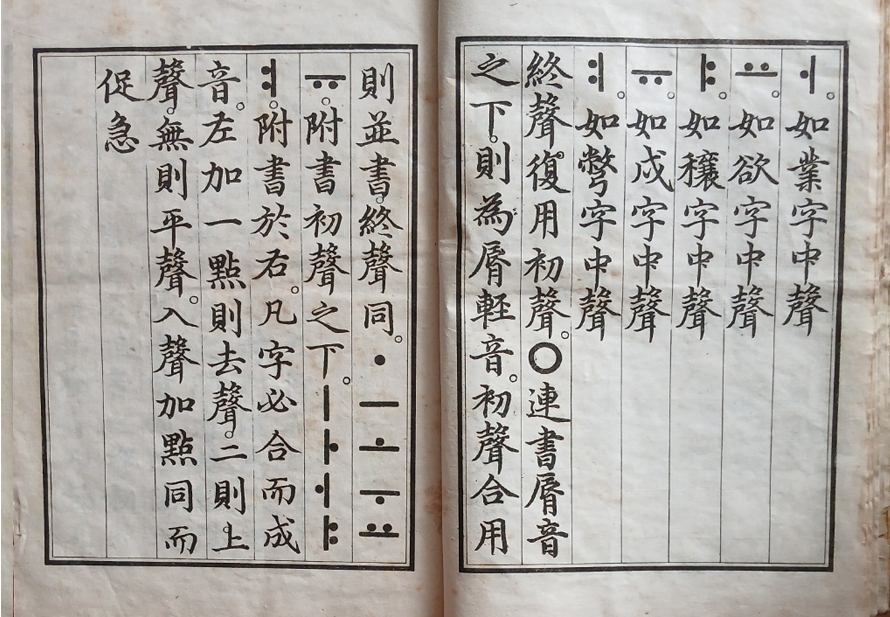 ㅓ。如業字中聲
ㅛ。如欲字中聲
ㅑ。如穰字中聲
ㅠ。如戌字中聲
ㅕ。如彆字中聲
終聲復用初聲。ㅇ連書脣音
之下。則為脣輕音。初聲合用
則並書。終聲同。ㆍㅡㅗㅜㅛ
ㅠ。附書初聲之下。ㅣㅏㅓㅑ
ㅕ。附書於右。凡字必合而成
音。左加一點則去聲。二則上
聲。無則平聲。入聲加點同而
促急